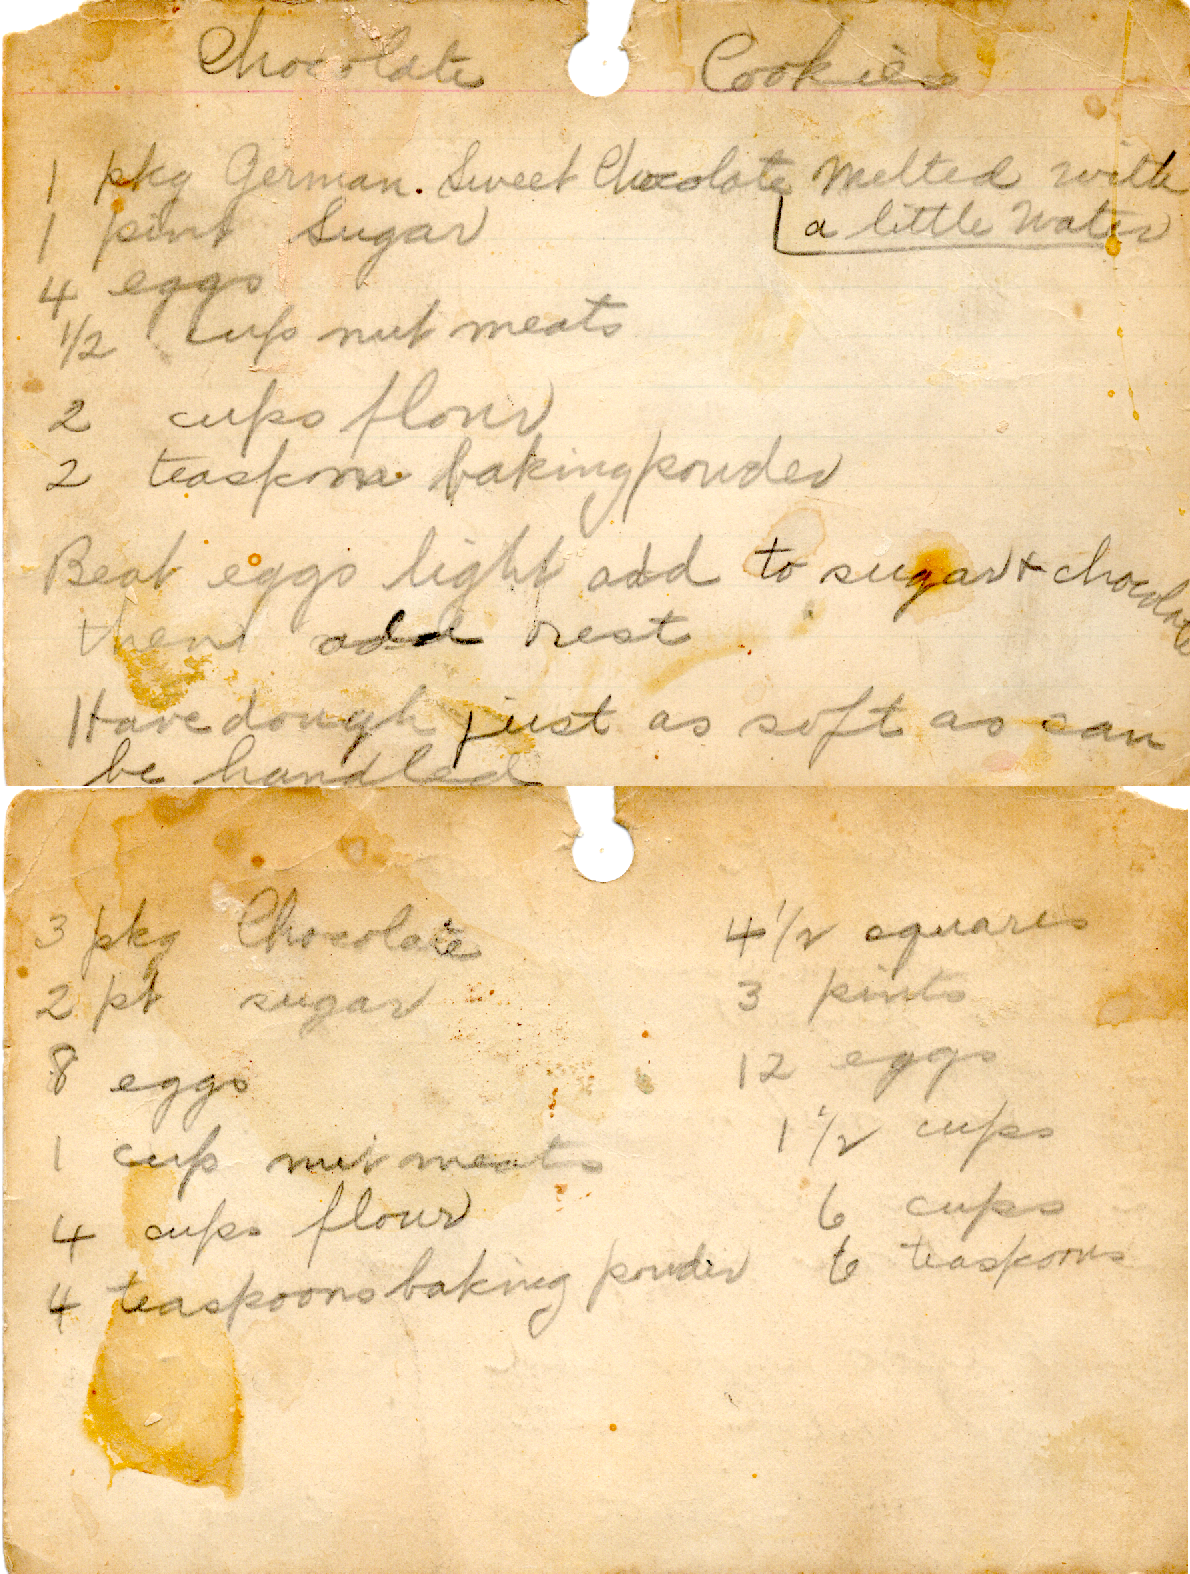 Chocolate Cookies
1 pkg German Sweet Chocolate Melted with
a little Water
1 pint Sugar
4 eggs
1/2 cup nut meats
2 cups flour
2 teaspoon baking powder
Beat eggs light add to sugar + chocolate
then add rest
Have dough just as soft as can
be handled
3 pkg Chocolate 4 1/2 squares
2 pt sugar 3 pints
8 eggs 12 eggs
1 cup nut meats 1 1/2 cups
4 cups flour 6 cups
4 teaspoons baking powder 6 teaspoons